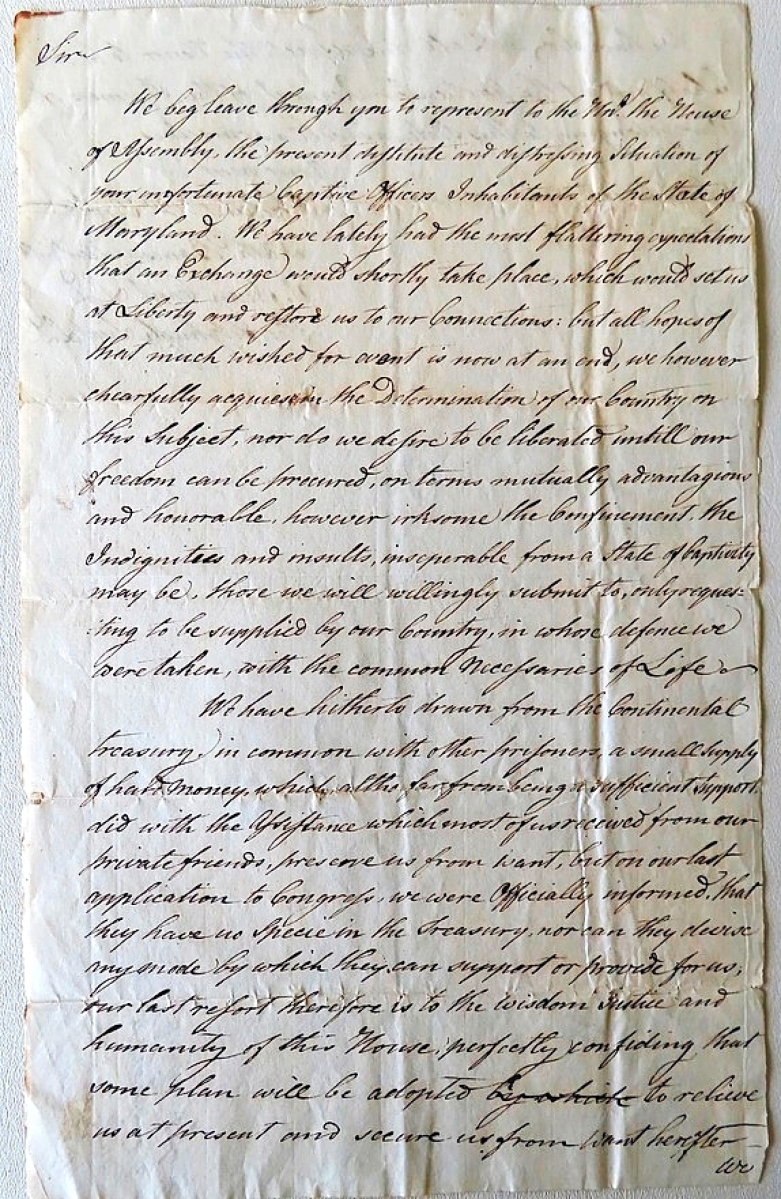 Sir
We beg leave through you to represent to the Hnd. the House
of Assembly, the present destitute and distressing Situation of
your unfortunate Captive Officers Inhabitants of the State of
Maryland. We have lately had the most flattering expectations
that an Exchange would shortly take place, which would set us
at Liberty and restore us to our Connections: but all hopes of
that much wished for event is now at an end, we however
chearfully acquiesce in the Determination of our Country on
this Subject, nor do we desire to be liberated untill our
freedom can be procured, on terms mutually advantagious
and honorable, however irksome the Confinement, the
Indignities and insults, inseperable from a State of Captivity
may be, those we will willingly submit to, only reques:
:ting to be supplied by our Country, in whose defence we
were taken, with the common Necessaries of Life
We have hitherto drawn from the Continental
treasury in common with other prisoners, a small supply
of hard Money, which, altho far from being a sufficient Support,
did with the Assistance which most of us received from our
private friends, preserve us from want, but on our last
application to Congress, we were Officially informed, that
they have no Specie in the Treasury, nor can they devise
any mode by which they can support or provide for us;
our last resort therefore is to the wisdom Justice and
humanity of this House, perfectly confiding that
some plan will be adopted by which to relieve
us at present and secure us from want hereafter
we